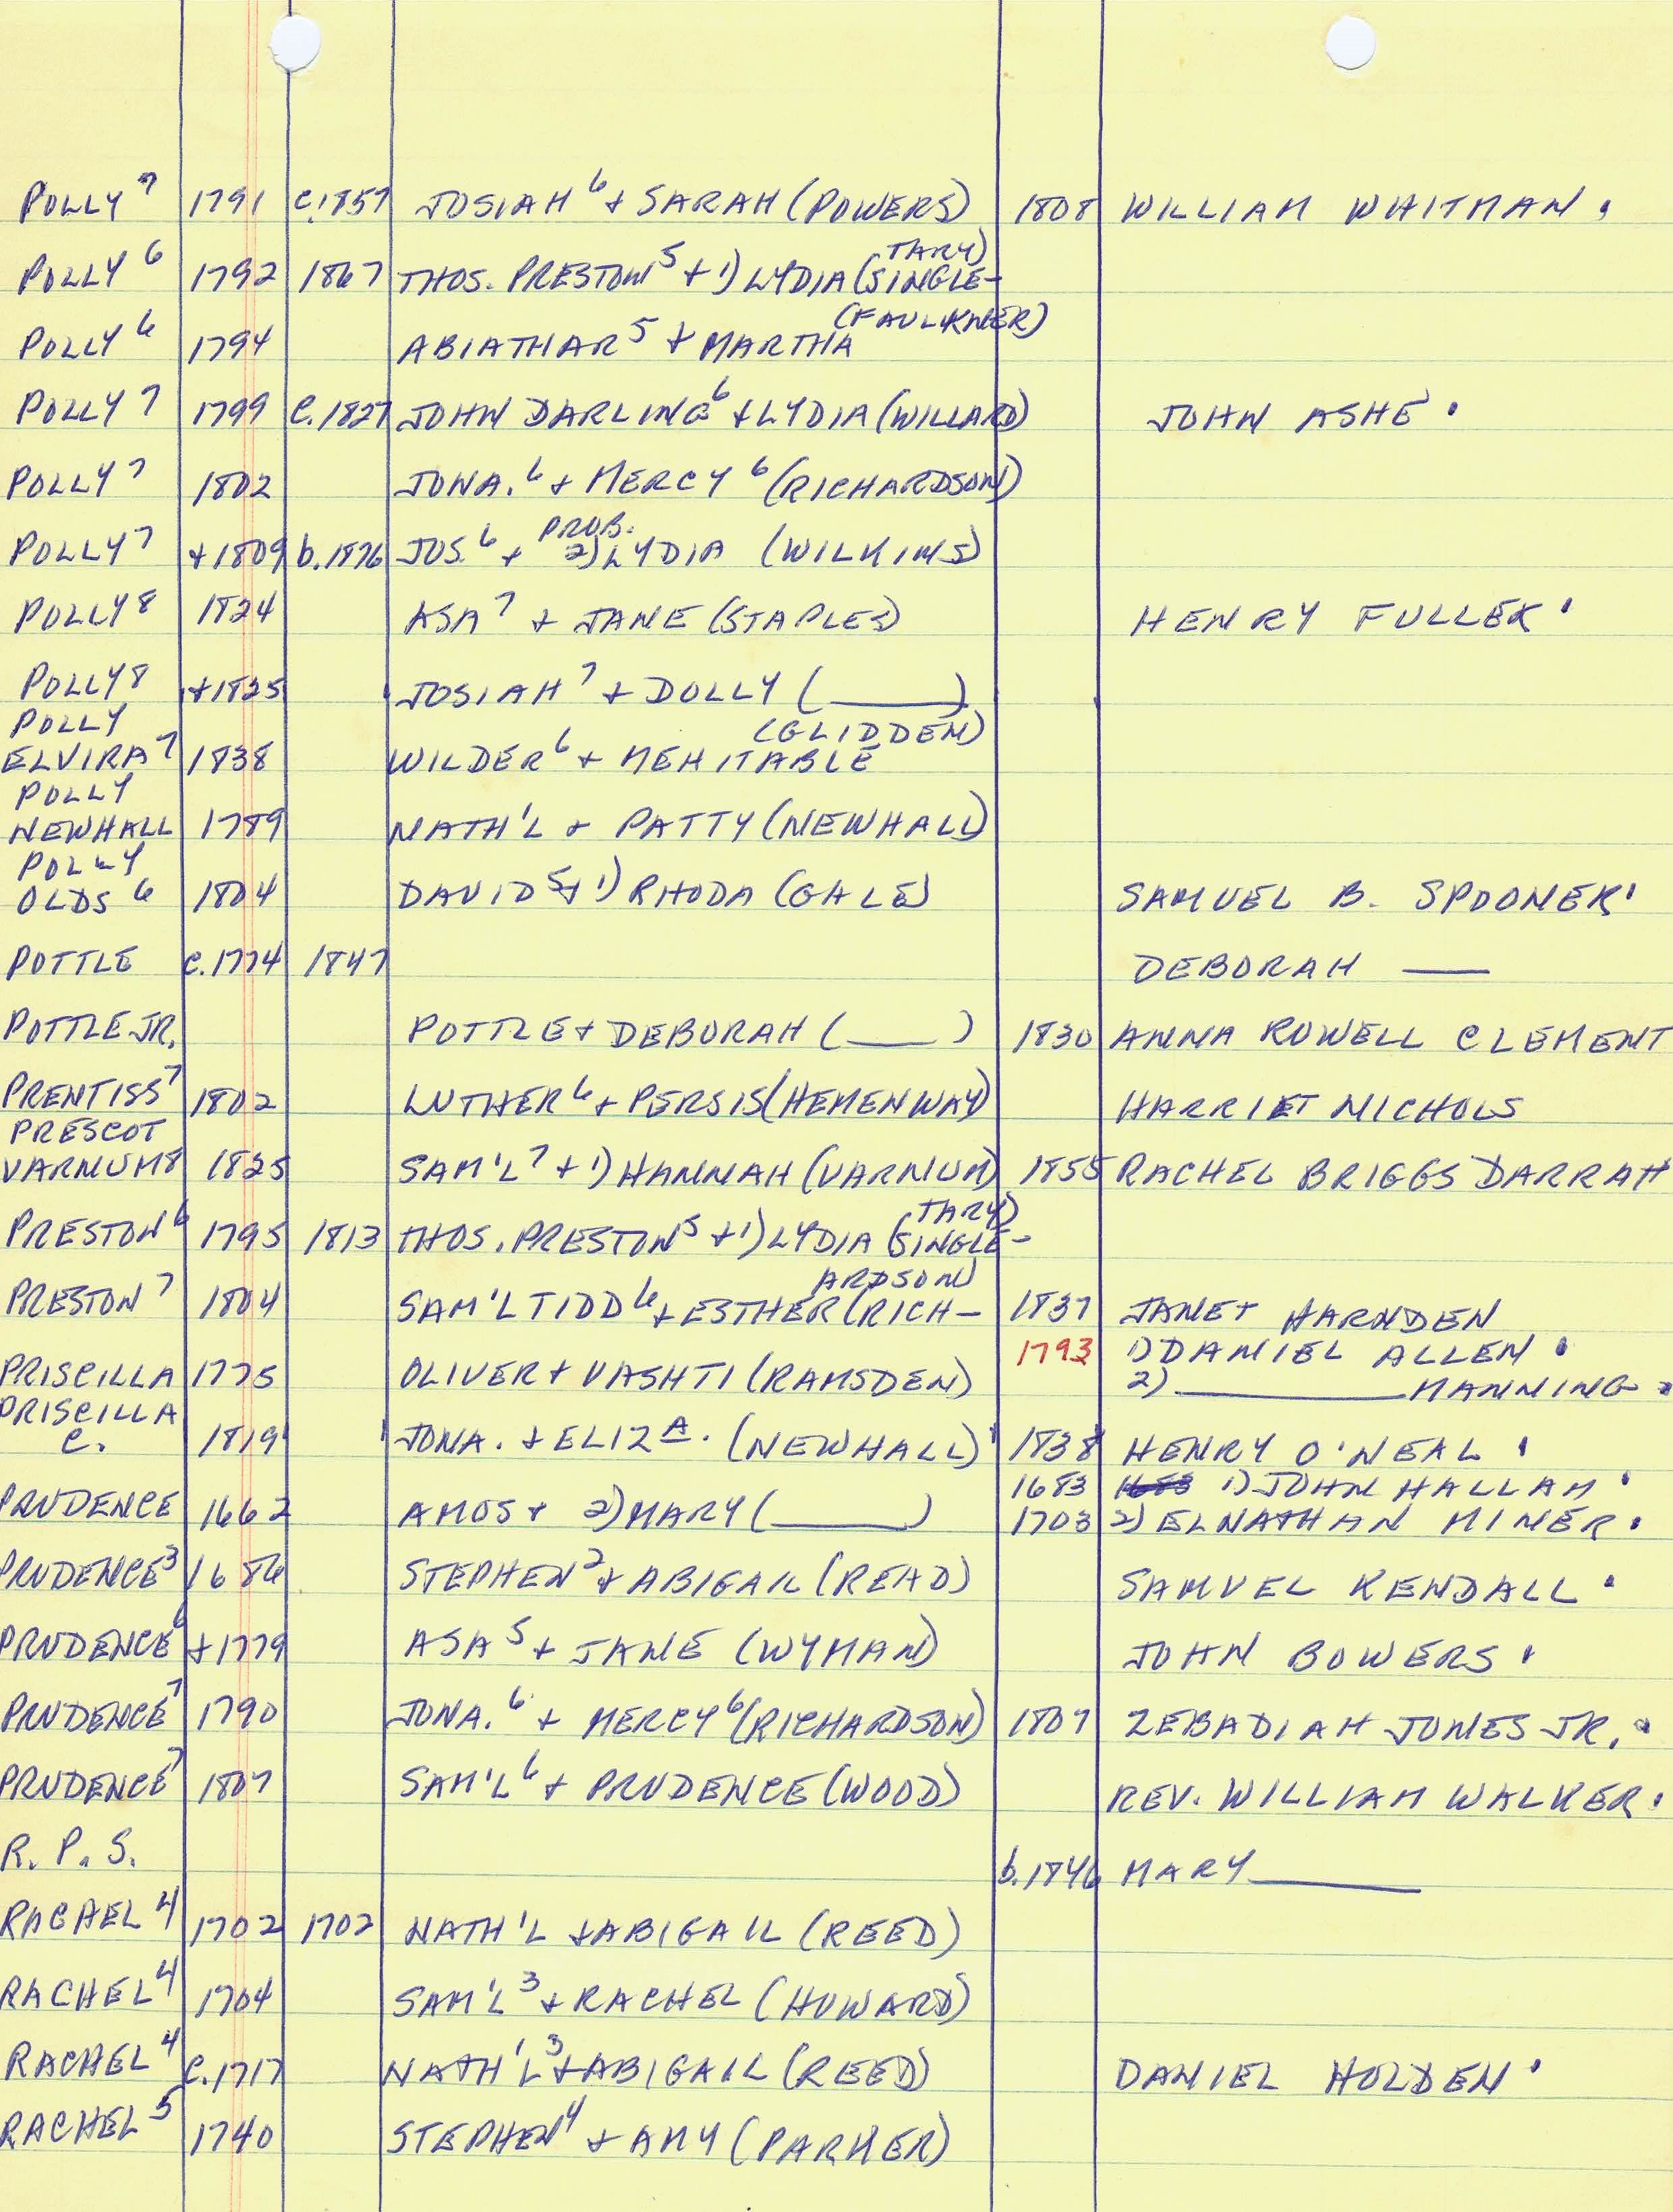 POLLY 7 1791 C.1857 JOSIAH 6 + SARAH (POWERS) 1808 WILLIAM WHITMAN.
TARY)
POLLY 6 1792 1867 THOS. PRESTON 5 + 1) LYDIA (SINGLE-
(FAULKNER)
POLLY 6 1794 ABIATHAR 5 + MARTHA
POLLY 7 1799 C.1827 JOHN DARLING 6 + LYDIA (WILLARD) JOHN ASHE.
POLLY 7 1802 JONA. 6 + MERCY 6 (RICHARDSON)
PROB.
POLLY 7 +1809 b.1876 JOS. 6 + 2) LYDIA (WILKINS)
POLLY 8 1824 ASA 7 + JANE (STAPLES) HENRY FULLER.
POLLY 8 +1825 JOSIAH 7 + DOLLY (____)
POLLY (GLIDDEN)
ELVIRA 7 1838 WILDER 6 + MEHITABLE
POLLY
NEWHALL 1789 NATH'L + PATTY (NEWHALL)
POLLY
OLDS 6 1804 DAVID 5 + 1) RHODA (GALE) SAMUEL B. SPOONER.
POTTLE C.1774 1847 DEBORAH ___
POTTLE JR. POTTLE + DEBORAH (___) 1830 ANNA ROWELL CLEMENT
PRENTISS 7 1802 LUTHER 6 + PERSIS (HEMENWAY) HARRIET NICHOLS
PRESCOT
VARNUM 8 1825 SAM'L 7 + 1) HANNAH (VARNUM) 1855 RACHEL BRIGGS DARRAH
TARY)
PRESTON 6 1795 1813 THOS. PRESTON 5 + 1) LYDIA (SINGLE-
ARDSON)
PRESTON 7 1804 SAM'L TIDD 6 + ESTHER (RICH- 1837 JANET HARNDEN
1793 1) DANIEL ALLEN.
PRISCILLA 1775 OLIVER + VASHTI (RAMSDEN) 2) ____ MANNING.
PRISCILLA
C. 1819 JONA. + ELIZA. (NEWHALL) 1838 HENRY O'NEAL.
1683 1683 1) JOHN HALLAM.
PRUDENCE 1662 AMOS + 2) MARY (____) 1703 2) ELNATHAN MINER.
PRUDENCE 3 1686 STEPHEN 2 + ABIGAIL (READ) SAMUEL KENDALL.
PRUDENCE 6 +1779 ASA 5 + JANE (WYMAN) JOHN BOWERS.
PRUDENCE 7 1790 JONA. 6 + MERCY 6 (RICHARDSON) 1807 ZEBADIAH JONES JR.
PRUDENCE 7 1807 SAM'L 6 + PRUDENCE (WOOD) REV. WILLIAM WALKER.
R. P. S. b.1846 MARY ____
RACHEL 4 1702 1702 NATH'L + ABIGAIL (REED)
RACHEL 4 1704 SAM'L 3 + RACHEL (HOWARD)
RACHEL 4 C.1717 NATH'L 3 + ABIGAIL (REED) DANIEL HOLDEN.
RACHEL 5 1740 STEPHEN 4 + AMY (PARKER)